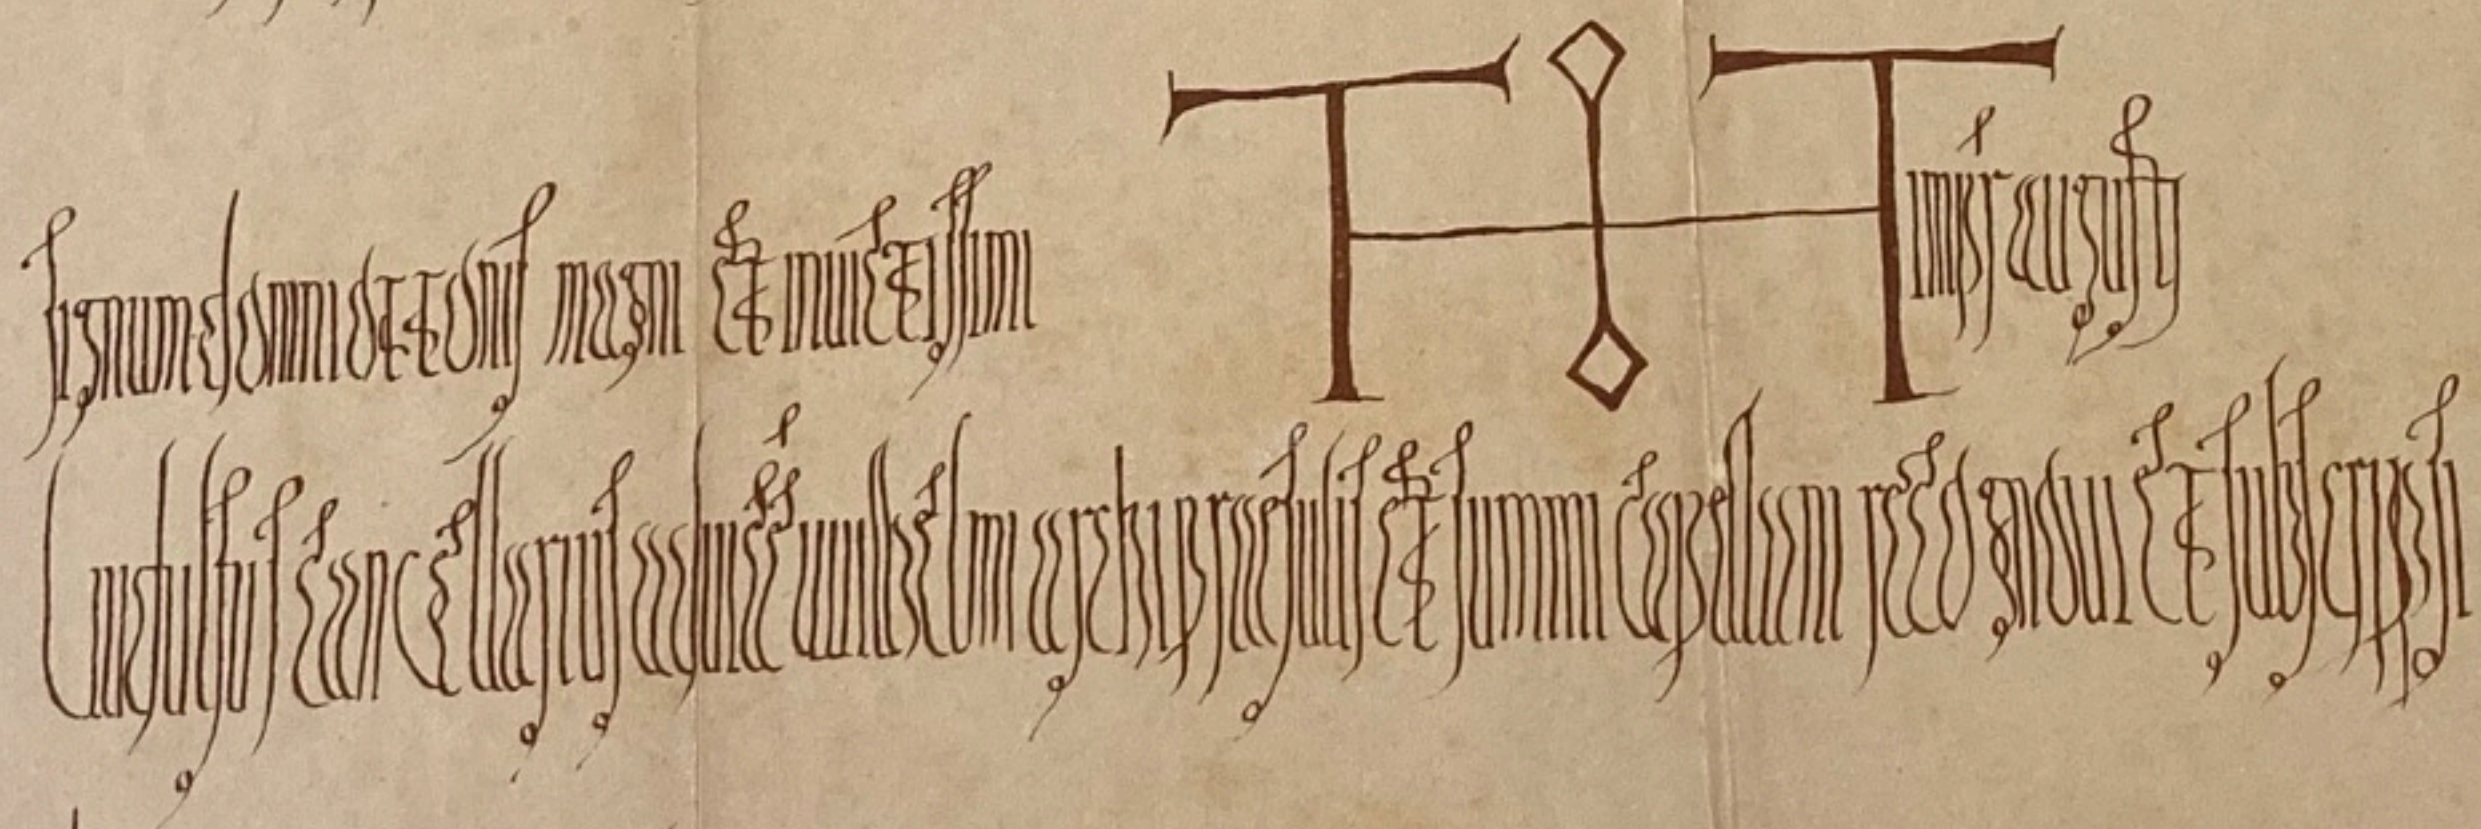 signum domni ottonis magni et inuictissimi impr augusti
Liutulfus cancellarius aduice uuilhelmi archipraesulis et summi capellani recognoui et subscripsi